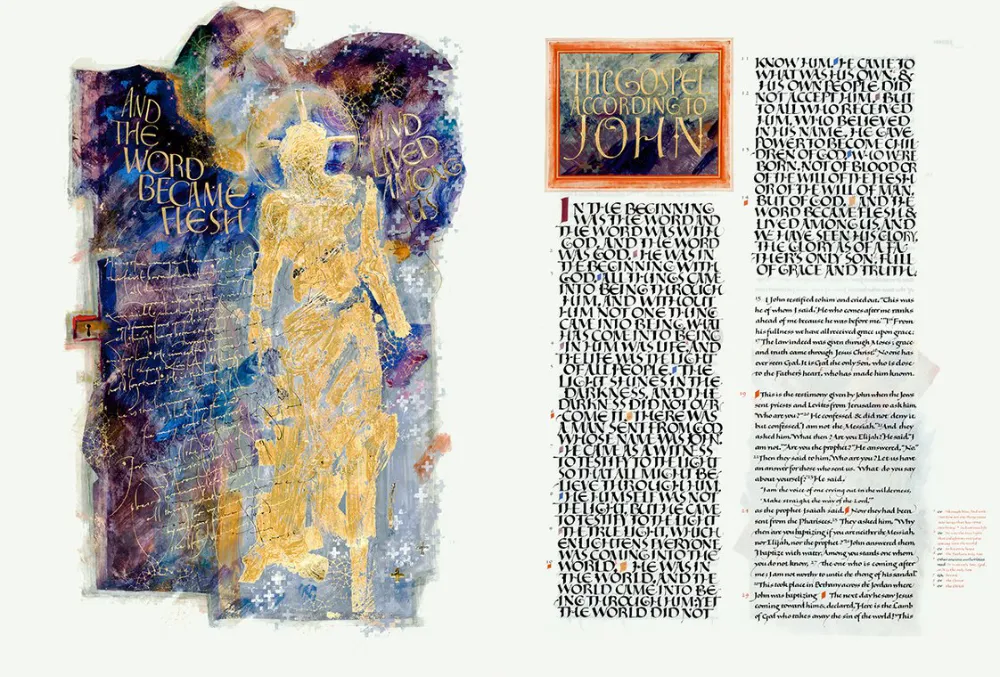 AND
THE
WORD
BECAME
FLESH
AND
LIVED
AMONG
US
THE GOSPEL
ACCORDING TO
JOHN
IN THE BEGINNING
WAS THE WORD AND
THE WORD WAS WITH
GOD, AND THE WORD
WAS GOD. HE WAS IN
THE BEGINNING WITH
GOD. ALL THINGS CAME
INTO BEING THROUGH
HIM, AND WITHOUT
HIM NOT ONE THING
CAME INTO BEING. WHAT
HAS COME INTO BEING
IN HIM WAS LIFE, AND
THE LIFE WAS THE LIGHT
OF ALL PEOPLE. THE
LIGHT SHINES IN THE
DARKNESS, AND THE
DARKNESS DID NOT OVER
COME IT. THERE WAS
A MAN SENT FROM GOD,
WHOSE NAME WAS JOHN.
HE CAME AS A WITNESS
TO TESTIFY TO THE LIGHT
SO THAT ALL MIGHT BE
LIEVE THROUGH HIM.
HE HIMSELF WAS NOT
THE LIGHT, BUT HE CAME
TO TESTIFY TO THE LIGHT.
THE TRUE LIGHT, WHICH
ENLIGHTENS EVERYONE,
WAS COMING INTO THE
WORLD. HE WAS IN
THE WORLD, AND THE
WORLD CAME INTO BE
ING THROUGH HIM; YET
THE WORLD DID NOT
KNOW HIM. HE CAME TO
WHAT WAS HIS OWN, &
HIS OWN PEOPLE DID
NOT ACCEPT HIM. BUT
TO ALL WHO RECEIVED
HIM, WHO BELIEVED
IN HIS NAME, HE GAVE
POWER TO BECOME CHIL
DREN OF GOD, WHO WERE
BORN, NOT OF BLOOD OR
OF THE WILL OF THE FLESH
OR OF THE WILL OF MAN,
BUT OF GOD. AND THE
WORD BECAME FLESH &
LIVED AMONG US, AND
WE HAVE SEEN HIS GLORY,
THE GLORY AS OF A FA
THER'S ONLY SON, FULL
OF GRACE AND TRUTH.
15 (John testified to him and cried out, "This was
he of whom I said, 'He who comes after me ranks
ahead of me because he was before me.'") 16 From
his fullness we have all received grace upon grace.
17 The law indeed was given through Moses; grace
and truth came through Jesus Christ. 18 No one has
ever seen God. It is God the only Son, who is close
to the Father's heart, who has made him known.
19 This is the testimony given by John when the Jews
sent priests and Levites from Jerusalem to ask him,
"Who are you?" 20 He confessed & did not deny it,
but confessed, "I am not the Messiah." 21 And they
asked him, "What then? Are you Elijah? He said, "I
am not." "Are you the prophet?" He answered, "No."
22 Then they said to him, "Who are you? Let us have
an answer for those who sent us. What do you say
about yourself?" 23 He said,
"I am the voice of one crying out in the wilderness,
'Make straight the way of the Lord,'"
as the prophet Isaiah said. 24 Now they had been
sent from the Pharisees. 25 They asked him, "Why
then are you baptizing if you are neither the Messiah,
nor Elijah, nor the prophet?" 26 John answered them,
"I baptize with water. Among you stands one whom
you do not know, 27 the one who is coming after
me; I am not worthy to untie the thong of his sandal."
28 This took place in Bethany across the Jordan where
John was baptizing. 29 The next day he saw Jesus
coming toward him & declared, "Here is the Lamb
of God who takes away the sin of the world! 30 This